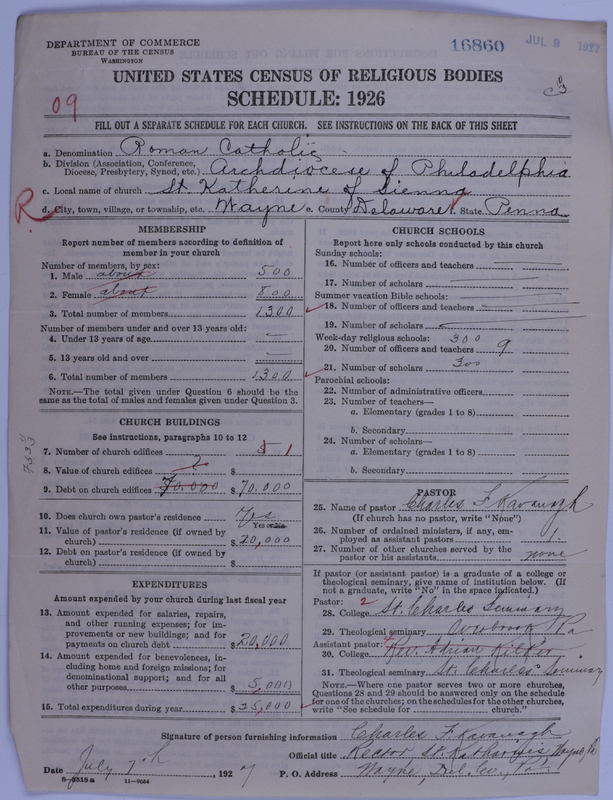 DEPARTMENT OF COMMERCE
BUREAU OF THE CENSUS
WASHINGTON
16860
JUL 9 1927
UNITED STATES CENSUS OF RELIGIOUS BODIES
SCHEDULE: 1926
09
FILL OUT A SEPARATE SCHEDULE FOR EACH CHURCH. SEE INSTRUCTIONS ON THE BACK OF THIS SHEET
a. Denomination Roman Catholic
b. Division (Association, Conference, Diocese, Presbytery, Synod, etc.) Archdiocese of Philadelphia
c. Local name of church St. Katherine of Sienna
R
d. City, town, village, or township, etc. Wayne e. County Delaware f. State Penna
MEMBERSHIP
Report number of members according to definition of
member in your church
Number of members, by sex:
1. Male about 500
2. Female about 800
3. Total number of members 1300
Number of members under and over 13 years old:
4. Under 13 years of age
5. 13 years old and over
6. Total number of members 1300
NOTE.—The total given under Question 6 should be the
same as the total of males and females given under Question 3.
CHURCH BUILDINGS
See instructions, paragraphs 10 to 12
7. Number of church edifices 1
8. Value of church edifices $
9. Debt on church edifices 70.000 $ 70.000
10. Does church own pastor's residence Yes
Yes or No
11. Value of pastor's residence (if owned by
church) $ 20,000
12. Debt on pastor's residence (if owned by
church) $
EXPENDITURES
Amount expended by church during last fiscal year
13. Amount expended for salaries, repairs,
and other running expenses; for im-
provements or new buildings; and for
payments on church debt $ 20,000
14. Amount expended for benevolences, in-
cluding home and foreign missions; for
denominational support; and for all
other purposes $ 5,000
15. Total expenditures during year $ 25,000
CHURCH SCHOOLS
Report here only schools conducted by this church
Sunday schools:
16. Number of officers and teachers
17. Number of scholars
Summer vacation Bible schools:
18. Number of officers and teachers
19. Number of scholars
Week-day religious schools: 300
20. Number of officers and teachers 9
21. Number of scholars 300
Parochial schools:
22. Number of administrative officers
23. Number of teachers—
a. Elementary (grades 1 to 8)
b. Secondary
24. Number of scholars—
a. Elementary (grades 1 to 8)
b. Secondary
PASTOR
25. Name of pastor Charles F. Kavanagh
(If church has no pastor, write "None")
26. Number of ordained ministers, if any, em-
ployed as assistant pastors 1
27. Number of other churches served by the
pastor or his assistants none
If pastor (or assistant pastor) is a graduate of a college or
theological seminary, give name of institution below. (If
not a graduate, write "No" in the space indicated.)
Pastor: 2
28. College St. Charles Seminary
29. Theological seminary Overbrook Pa
Assistant pastor:
30. College Rev. Adrian
31. Theological seminary St. Charles' Seminary
NOTE.—Where one pastor serves two or more churches,
Questions 28 and 29 should be answered only on the schedule
for one of the churches; on the schedules for the other churches,
write "See schedule for ______ church."
Signature of person furnishing information Charles F. Kavanagh
Official title Rector St. Katharine's Wayne, Pa
Date July 7th, 1927 P. O. Address Wayne, Del. Co., Pa.
8-3518a 11-9664